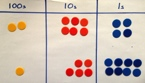 100s 10s 1s